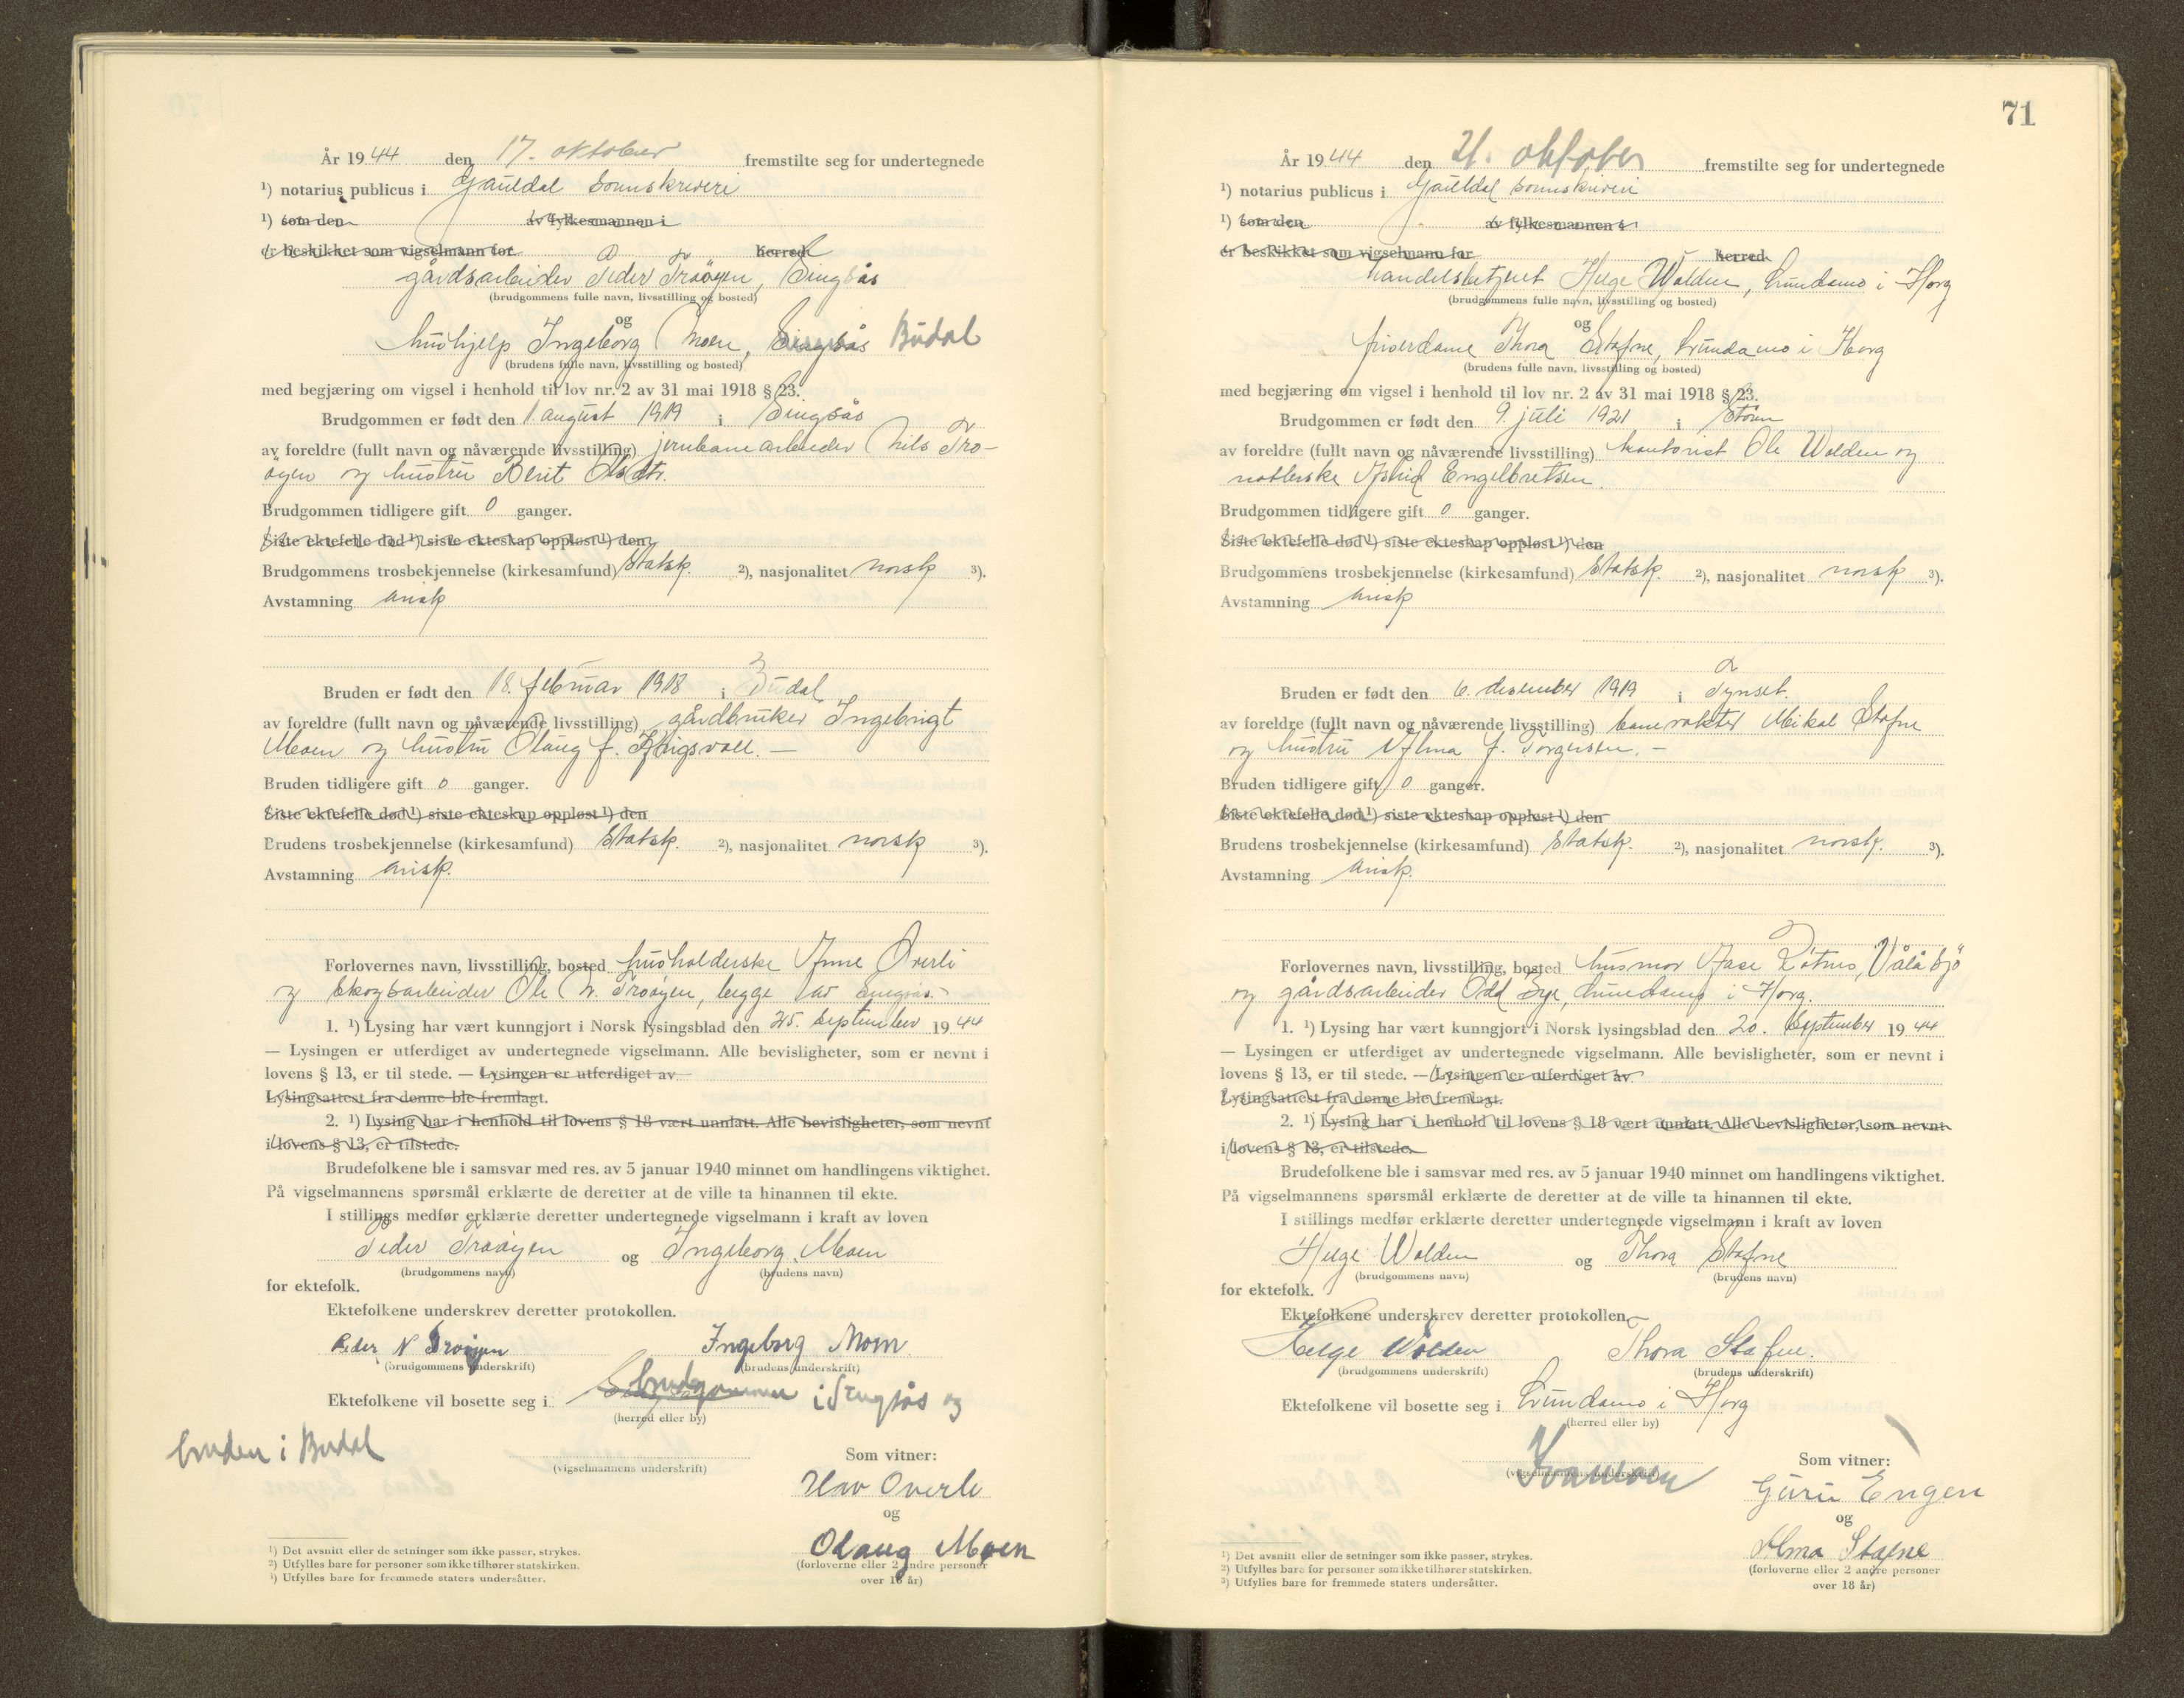 År 1944 den 17. oktober fremstilte seg for undertegnede
¹) notarius publicus i Gauldal sorenskriveri
¹) som den av fylkesmannen i
er beskikket som vigselmann for herred
gårdsarbeider Peder Troøyen, Singsås
(brudgommens fulle navn, livsstilling og bosted)
og
hushjelp Ingeborg Moen, Singsås Budal
(brudens fulle navn, livsstilling og bosted)
med begjæring om vigsel i henhold til lov nr. 2 av 31 mai 1918 § 23.
Brudgommen er født den 1. august 1919 i Singsås
av foreldre (fullt navn og nåværende livsstilling) jernbanearbeider Nils Tro-
øyen og hustru Berit Olsdtr.
Brudgommen tidligere gift 0 ganger.
Siste ektefelle død ¹) siste ekteskap oppløst ¹) den
Brudgommens trosbekjennelse (kirkesamfund) Statsk. ²), nasjonalitet norsk ³).
Avstamning arisk
Bruden er født den 18. februar 1918 i Budal
av foreldre (fullt navn og nåværende livsstilling) gårdbruker Ingebrigt
Moen og hustru Olaug f. Storligsvoll. —
Bruden tidligere gift 0 ganger.
Siste ektefelle død ¹) siste ekteskap oppløst ¹) den
Brudens trosbekjennelse (kirkesamfund) Statsk. ²), nasjonalitet norsk ³).
Avstamning arisk.
Forlovernes navn, livsstilling, bosted husholderske Anne Øverli
og skogsarbeider Ole N. Troøyen, begge av Singsås. -
1. ¹) Lysing har vært kunngjort i Norsk lysingsblad den 25. september 1944
— Lysingen er utferdiget av undertegnede vigselmann. Alle bevisligheter, som er nevnt i
lovens § 13, er til stede. — Lysingen er utferdiget av
Lysingsattest fra denne ble fremlagt.
2. ¹) Lysing har i henhold til lovens § 18 vært unnlatt. Alle bevisligheter, som nevnt
i lovens § 13, er tilstede.
Brudefolkene ble i samsvar med res. av 5 januar 1940 minnet om handlingens viktighet.
På vigselmannens spørsmål erklærte de deretter at de ville ta hinannen til ekte.
I stillings medfør erklærte deretter undertegnede vigselmann i kraft av loven
Peder Troøyen og Ingeborg Moen
(brudgommens navn) (brudens navn)
for ektefolk.
Ektefolkene underskrev deretter protokollen.
Peder N Troøyen Ingeborg Moen
(brudgommens underskrift) (brudens underskrift)
Ektefolkene vil bosette seg i brudgommen i Singsås og
(herred eller by)
bruden i Budal
(vigselmannens underskrift)
Som vitner:
Olav Øverli
og
Olaug Moen
(forloverne eller 2 andre personer
over 18 år)
¹) Det avsnitt eller de setninger som ikke passer, strykes.
²) Utfylles bare for personer som ikke tilhører statskirken.
³) Utfylles bare for fremmede staters undersåtter.
71
År 1944 den 21. oktober fremstilte seg for undertegnede
¹) notarius publicus i Gauldal sorenskriveri
¹) som den av fylkesmannen i
er beskikket som vigselmann for herred
handelsbetjent Helge Wolden, Lundamo i Horg
(brudgommens fulle navn, livsstilling og bosted)
og
friserdame Thora Stafne, Lundamo i Horg
(brudens fulle navn, livsstilling og bosted)
med begjæring om vigsel i henhold til lov nr. 2 av 31 mai 1918 § 23.
Brudgommen er født den 9. juli 1921 i Støren
av foreldre (fullt navn og nåværende livsstilling) kontorist Ole Wolden og
Engelbretsen.
Brudgommen tidligere gift 0 ganger.
Siste ektefelle død ¹) siste ekteskap oppløst ¹) den
Brudgommens trosbekjennelse (kirkesamfund) Statsk. ²), nasjonalitet norsk ³).
Avstamning arisk
Bruden er født den 6. desember 1919 i Tynset.
av foreldre (fullt navn og nåværende livsstilling) banevokter Mikal Stafne
og hustru Alma f. Torgersen. —
Bruden tidligere gift 0 ganger.
Siste ektefelle død ¹) siste ekteskap oppløst ¹) den
Brudens trosbekjennelse (kirkesamfund) Statsk. ²), nasjonalitet norsk. ³).
Avstamning arisk.
Forlovernes navn, livsstilling, bosted husmor Aase Rötnes, Vålåsjö
og gårdsarbeider Odd Lundamo i Horg.
1. ¹) Lysing har vært kunngjort i Norsk lysingsblad den 20. september 1944
— Lysingen er utferdiget av undertegnede vigselmann. Alle bevisligheter, som er nevnt i
lovens § 13, er til stede. — Lysingen er utferdiget av
Lysingsattest fra denne ble fremlagt.
2. ¹) Lysing har i henhold til lovens § 18 vært unnlatt. Alle bevisligheter, som nevnt
i lovens § 13, er tilstede.
Brudefolkene ble i samsvar med res. av 5 januar 1940 minnet om handlingens viktighet.
På vigselmannens spørsmål erklærte de deretter at de ville ta hinannen til ekte.
I stillings medfør erklærte deretter undertegnede vigselmann i kraft av loven
Helge Wolden og Thora Stafne
(brudgommens navn) (brudens navn)
for ektefolk.
Ektefolkene underskrev deretter protokollen.
Helge Wolden Thora Stafne.
(brudgommens underskrift) (brudens underskrift)
Ektefolkene vil bosette seg i Lundamo i Horg
(herred eller by)
(vigselmannens underskrift)
Som vitner:
Guru Engen
og
Alma Stafne
(forloverne eller 2 andre personer
over 18 år)
¹) Det avsnitt eller de setninger som ikke passer, strykes.
²) Utfylles bare for personer som ikke tilhører statskirken.
³) Utfylles bare for fremmede staters undersåtter.